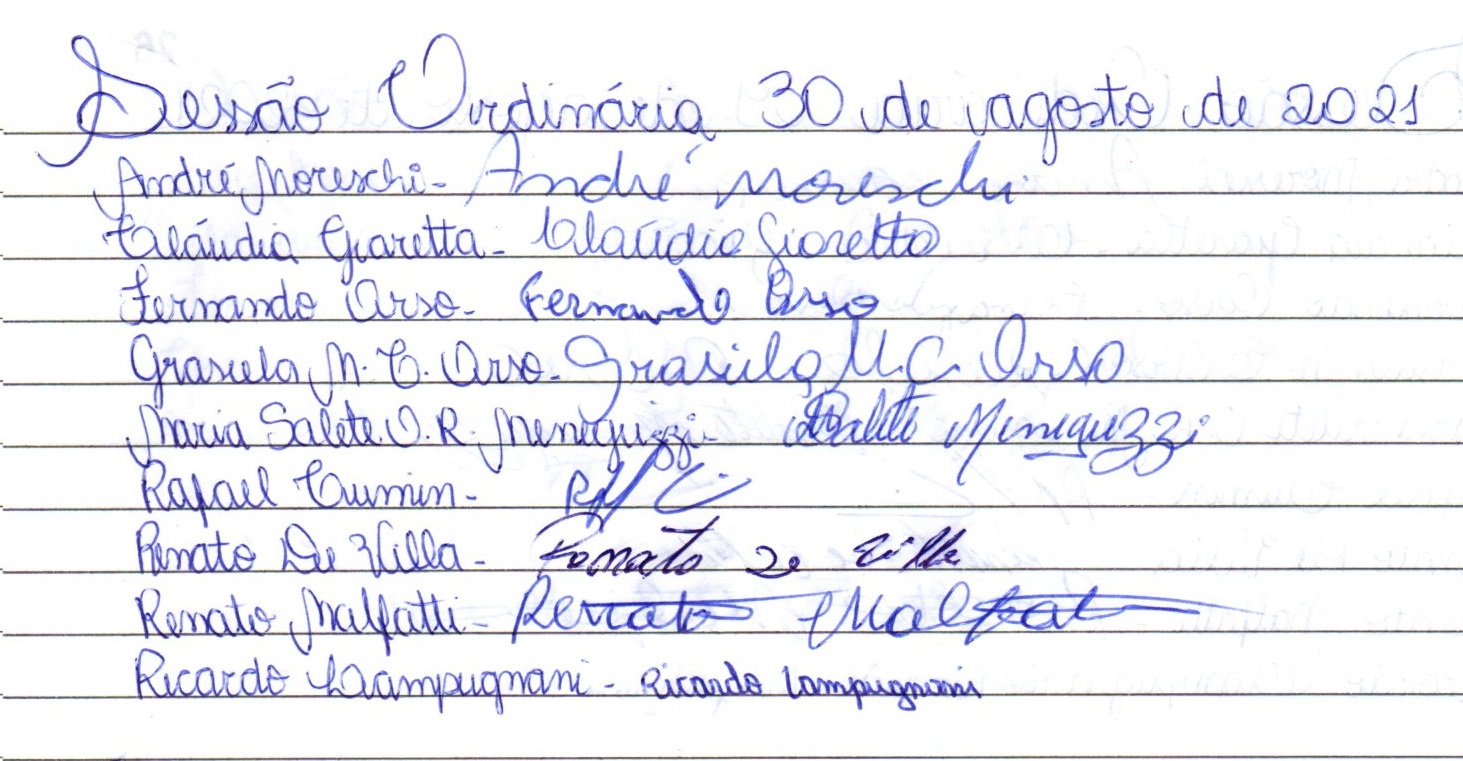 Sessão Ordinária 30 de agosto de 2021
André Moreschi - André Moreschi
Claúdia Giaretta - Claudia Giaretta
Fernando Orso - Fernando Orso
Grasiela M. C. Orso - Grasiela M.C. Orso
Maria Salete O. R. Meneguzzi - Salete Meneguzzi
Rafael Cumin -
Renato De Villa - Renato De Villa
Renato Malfatti - Renato Malfatti
Ricardo Lampugnani - Ricardo Lampugnani